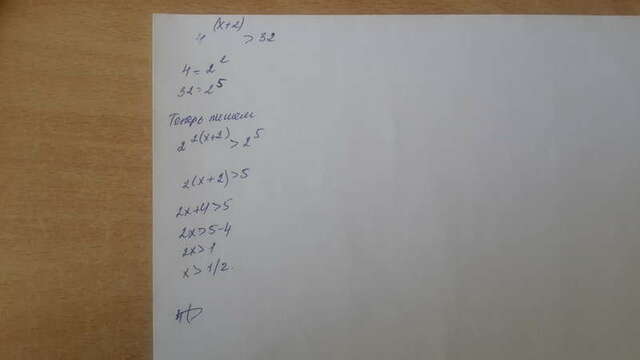 4^(x+2) > 32
4 = 2^2
32 = 2^5
Теперь пишем
2^2(x+2) > 2^5
2(x+2) > 5
2x+4 > 5
2x > 5-4
2x > 1
x > 1/2.